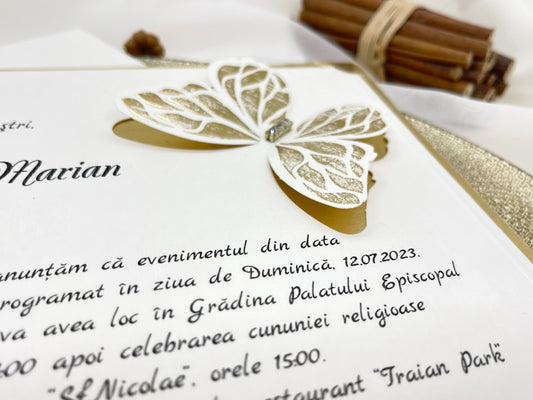 ștri,
Marian
anunțăm că evenimentul din data
programat în ziua de Duminică, 12.07.2023.
va avea loc în Grădina Palatului Episcopal
:00 apoi celebrarea cununiei religioase
"Sf.Nicolae", orele 15:00.
restaurant "Traian Park"